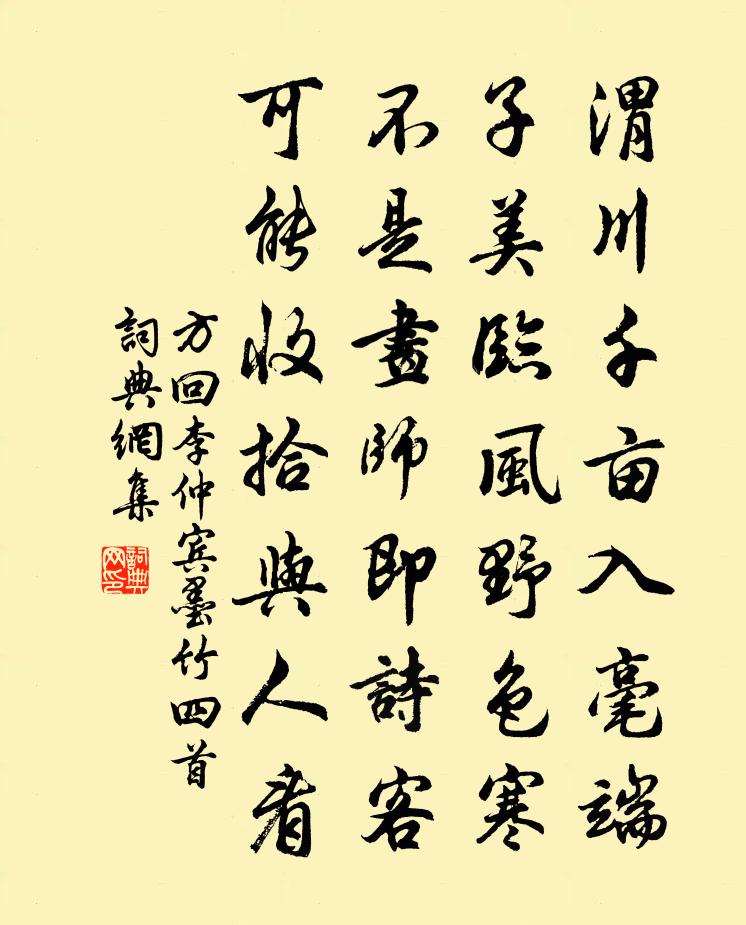 渭川千亩入毫端
子美臨風野色寒
不是畫師即詩客
可能收拾與人看
方回李仲宾墨竹四首
詞典網集
詞典网印